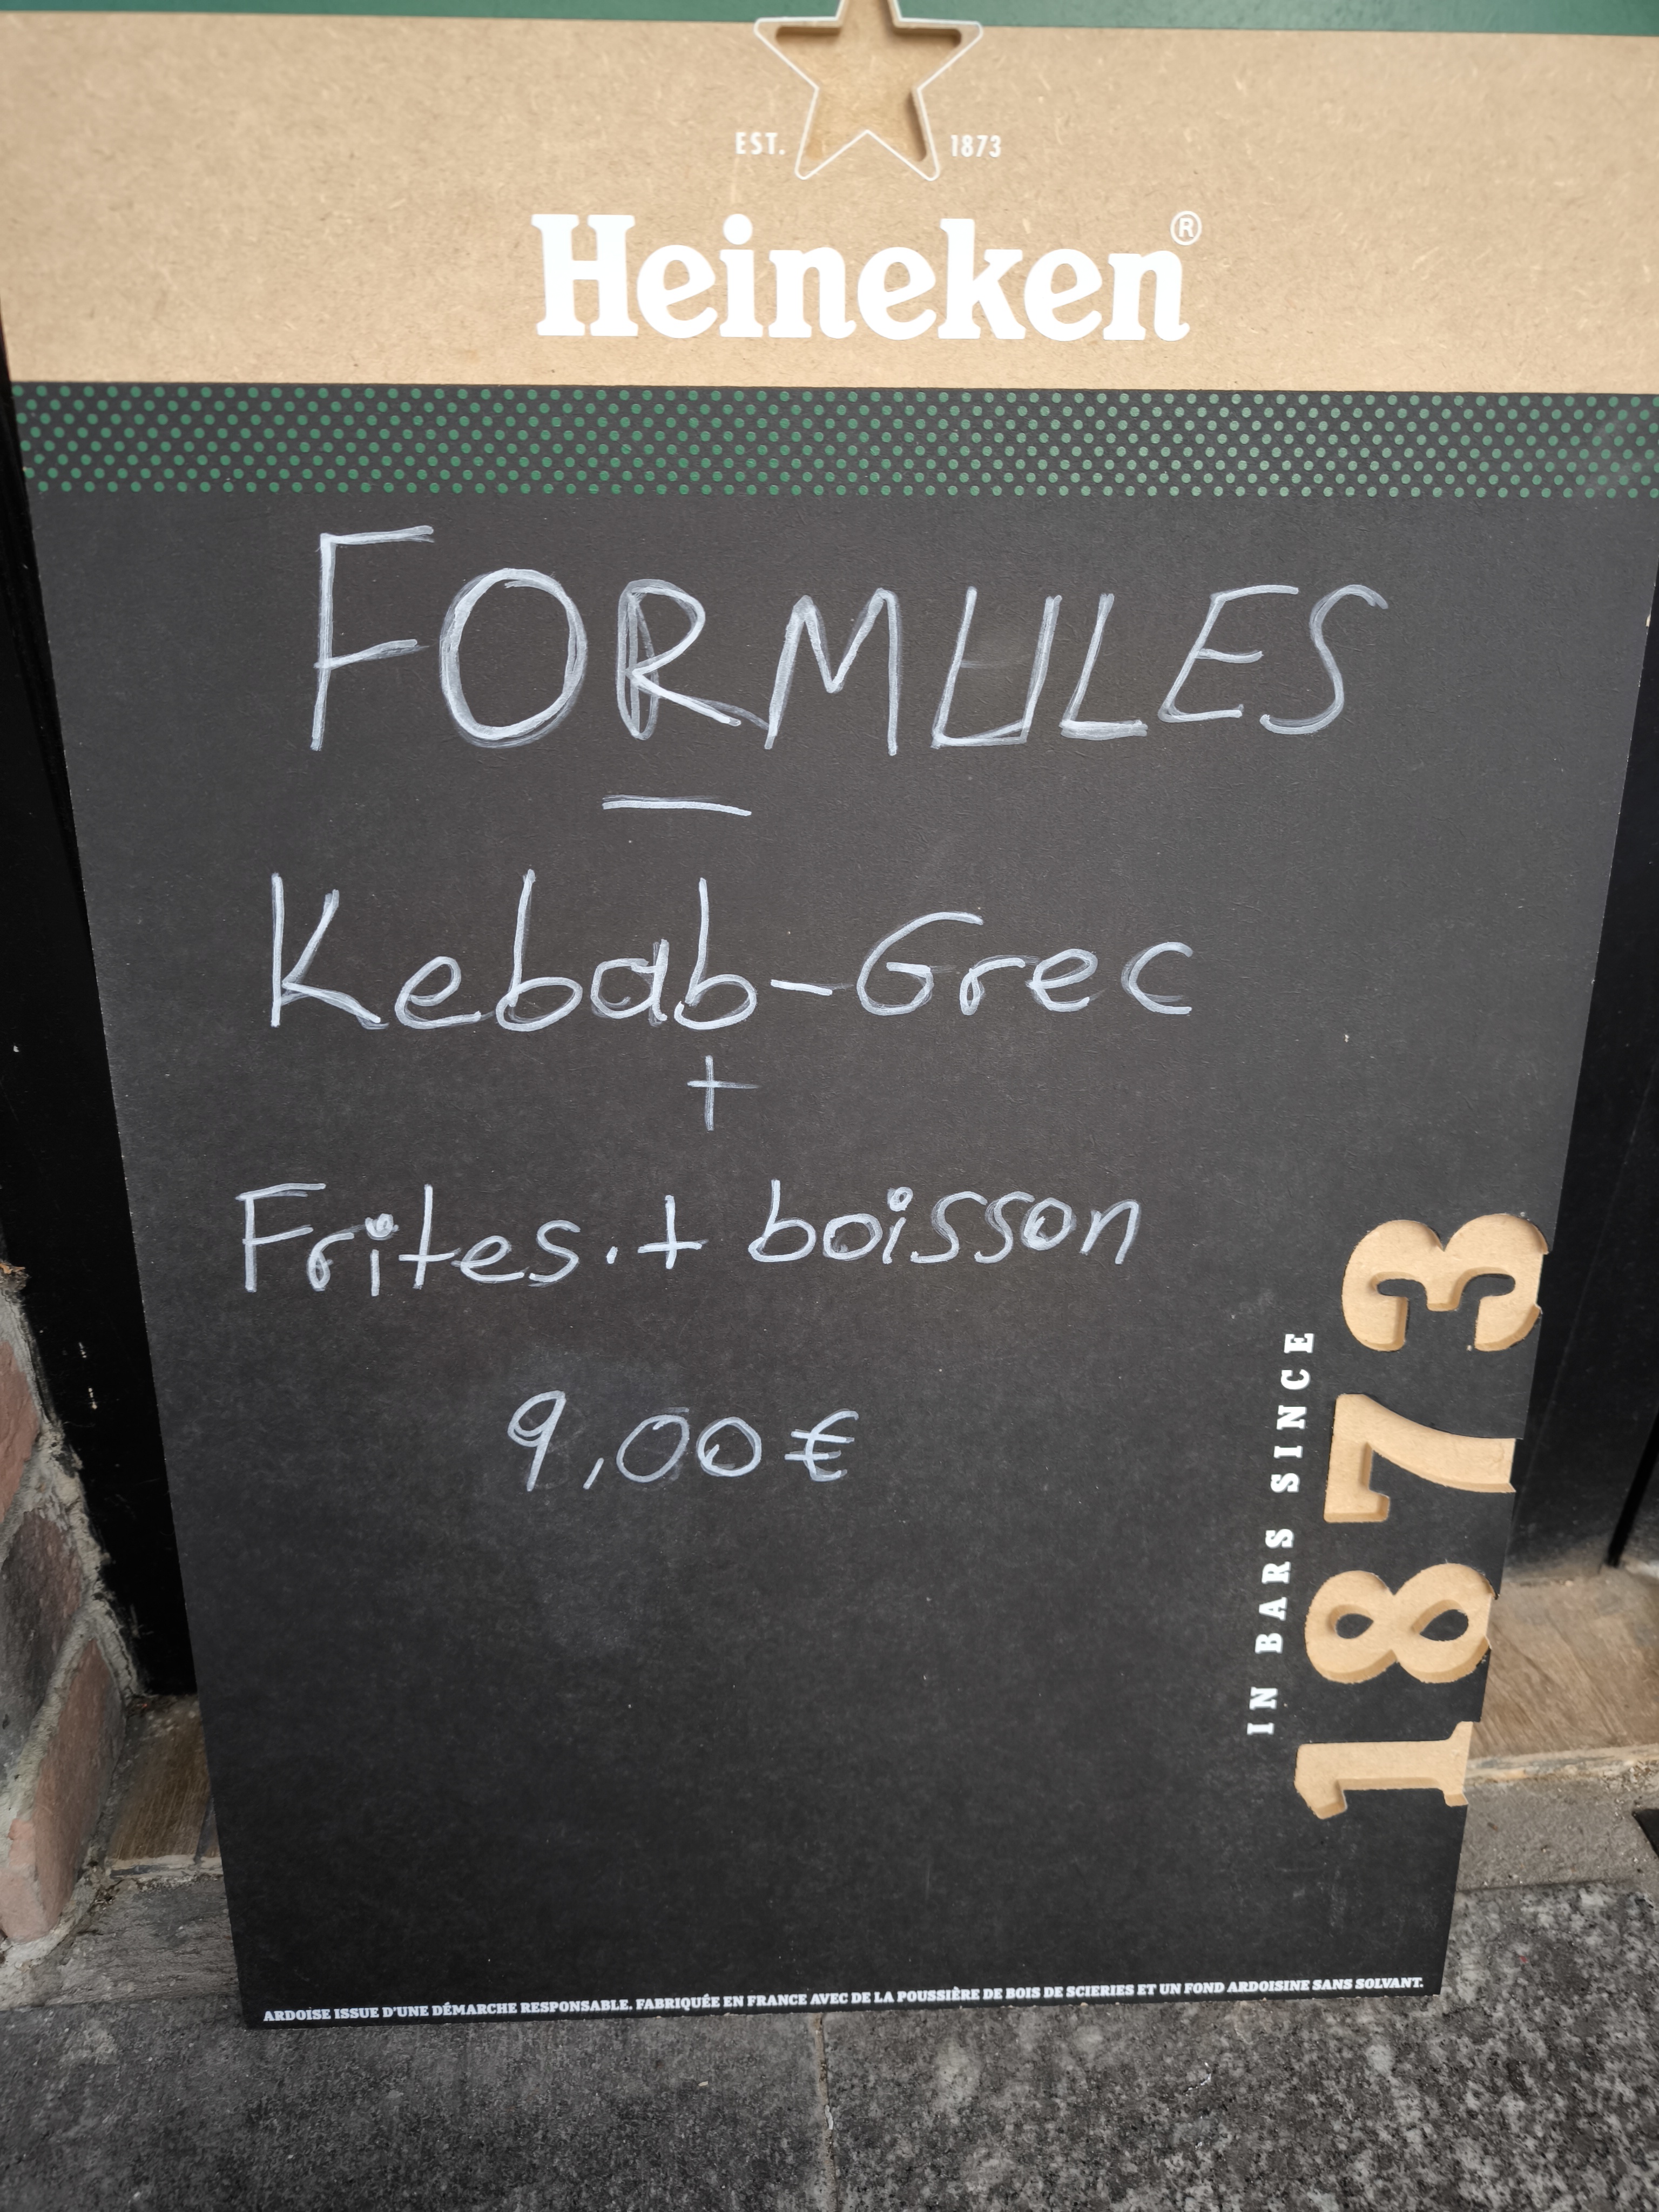 EST. 1873
Heineken®
FORMULES
Kebab-Grec
+
Frites.+ boisson
9,00€
IN BARS SINCE
1873
ARDOISE ISSUE D'UNE DÉMARCHE RESPONSABLE. FABRIQUÉE EN FRANCE AVEC DE LA POUSSIÈRE DE BOIS DE SCIERIES ET UN FOND ARDOISINE SANS SOLVANT.